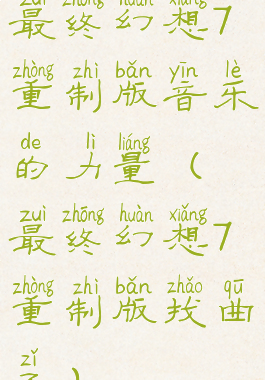 zuì zhōng huàn xiǎng
最终幻想7
zhòng zhì bǎn yīn lè
重制版音乐
de lì liáng
的力量（
zuì zhōng huàn xiǎng
最终幻想7
zhòng zhì bǎn zhǎo qū
重制版找曲
zǐ
子）